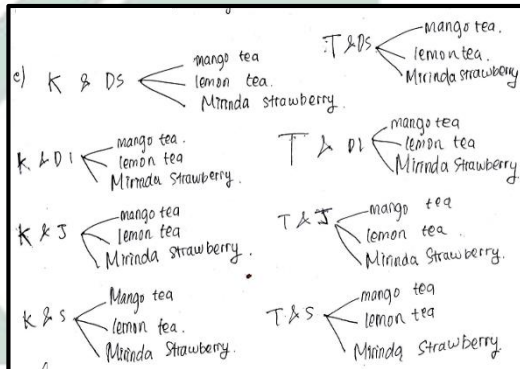 e) K & DS
mango tea
lemon tea.
Mirinda strawberry.
T & DS
mango tea.
lemon tea.
Mirinda strawberry
K & DI
mango tea.
lemon tea
Mirinda strawberry.
T & DI
mango tea
lemon tea
Mirinda strawberry
K & J
mango tea
lemon tea
Mirinda strawberry.
T & J
mango tea
lemon tea.
Mirinda strawberry.
K & S
Mango tea
lemon tea.
Mirinda Strawberry.
T & S
mango tea
lemon tea
Mirinda strawberry.